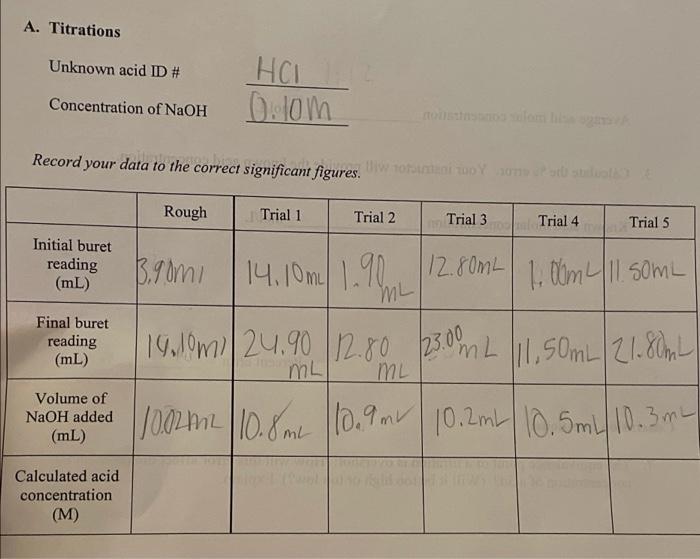 A. Titrations
Unknown acid ID # HCl
Concentration of NaOH 0.10M
Record your data to the correct significant figures.
Rough Trial 1 Trial 2 Trial 3 Trial 4 Trial 5
Initial buret reading (mL) 3.90ml 14.10mL 1.90 mL 12.80mL 1.00mL 11.50mL
Final buret reading (mL) 14.10ml 24.90 mL 12.80 mL 23.00mL 11.50mL 21.80mL
Volume of NaOH added (mL) 10.02mL 10.8mL 10.9mL 10.2mL 10.5mL 10.3mL
Calculated acid concentration (M)